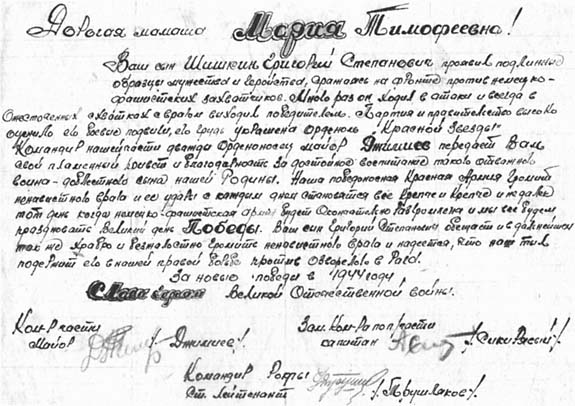 Дорогая мамаша Мария Тимофеевна!
Ваш сын Шишкин Григорий Степанович проявил подлинные
образцы мужества и геройства, сражаясь на фронте против немецко-
фашистских захватчиков. Много раз он ходил в атаки и всегда в
ожесточенных схватках с врагом выходил победителем. Партия и правительство высоко
оценило его боевые подвиги, его грудь украшена Орденом "Красной Звезды"
Командир нашей части дважды Орденоносец майор Джилиев передает Вам
свой пламенный привет и благодарность за достойное воспитание такого отважного
воина-доблестного сына нашей Родины. Наша победоносная Красная Армия громит
ненавистного врага и ее удары с каждым днем становятся все крепче и крепче и недалек
тот день когда немецко-фашистская армия будет окончательно разгромлена и мы все будем
праздновать Великий день Победы. Ваш сын Григорий Степанович обещает и в дальнейшем
так же храбро и безжалостно громить ненавистного врага и надеется, что наш тыл
поддержит его в нашей правой борьбе против
За новые победы в 1944 году
Слава героям Великой Отечественной войны.
Ком-р части
майор /Джилиев/
Зам. Ком-ра по п/части
капитан
Командир Роты
Ст. Лейтенант